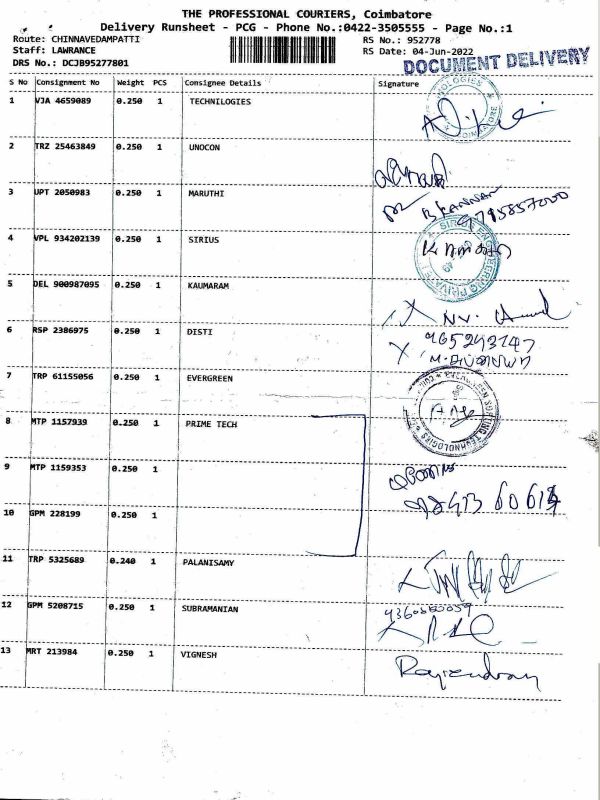 THE PROFESSIONAL COURIERS, Coimbatore
Delivery Runsheet - PCG - Phone No.:0422-3505555 - Page No.:1
Route: CHINNAVEDAMPATTI RS No.: 952778
Staff: LAWRANCE RS Date: 04-Jun-2022
DRS No.: DCJB95277801 DOCUMENT DELIVERY
S No Consignment No Weight PCS Consignee Details Signature
1 VJA 4659089 0.250 1 TECHNILOGIES
2 TRZ 25463849 0.250 1 UNOCON
3 UPT 2050983 0.250 1 MARUTHI
B KANNAN
4 VPL 934202139 0.250 1 SIRIUS
5 DEL 900987095 0.250 1 KAUMARAM
6 RSP 2386975 0.250 1 DISTI
7 TRP 61155056 0.250 1 EVERGREEN
8 MTP 1157939 0.250 1 PRIME TECH
9 MTP 1159353 0.250 1
10 GPM 228199 0.250 1
11 TRP 5325689 0.240 1 PALANISAMY
12 GPM 5208715 0.250 1 SUBRAMANIAN
13 MRT 213984 0.250 1 VIGNESH
Rajendran